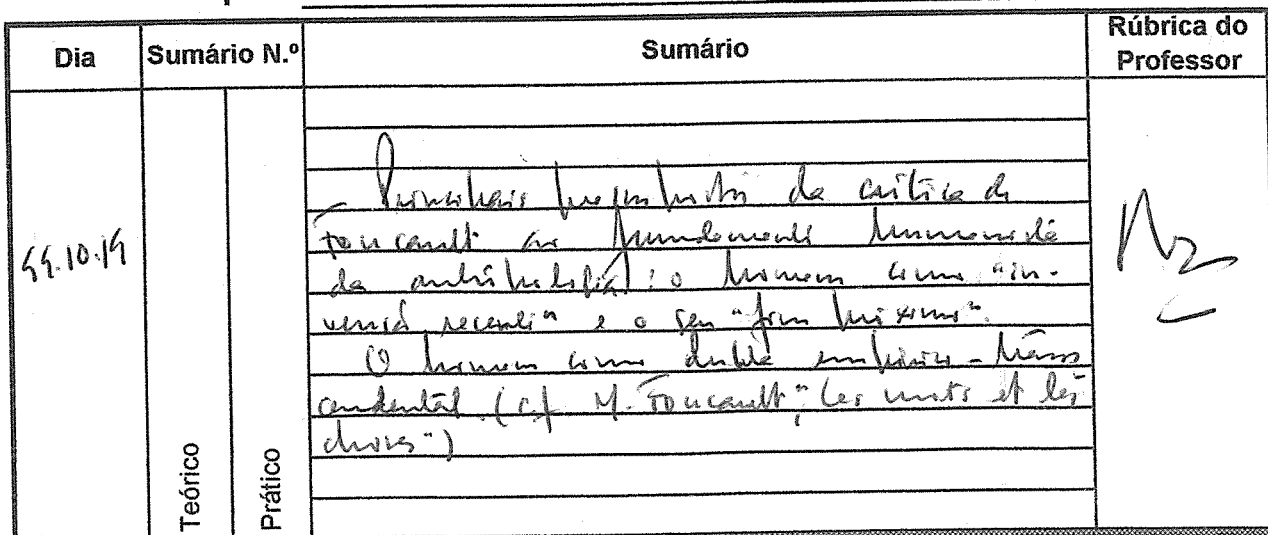 Dia Sumário N.º Sumário Rúbrica do Professor
99.10.19
- Principais pressupostos da crítica de
Foucault ao fundamento humanista
da antropologia: o homem como "in-
venção recente" e o seu "fim próximo".
O homem como duplo empírico-trans
cendental (cf. M. Foucault, "Les mots et les
choses")
Teórico
Prático